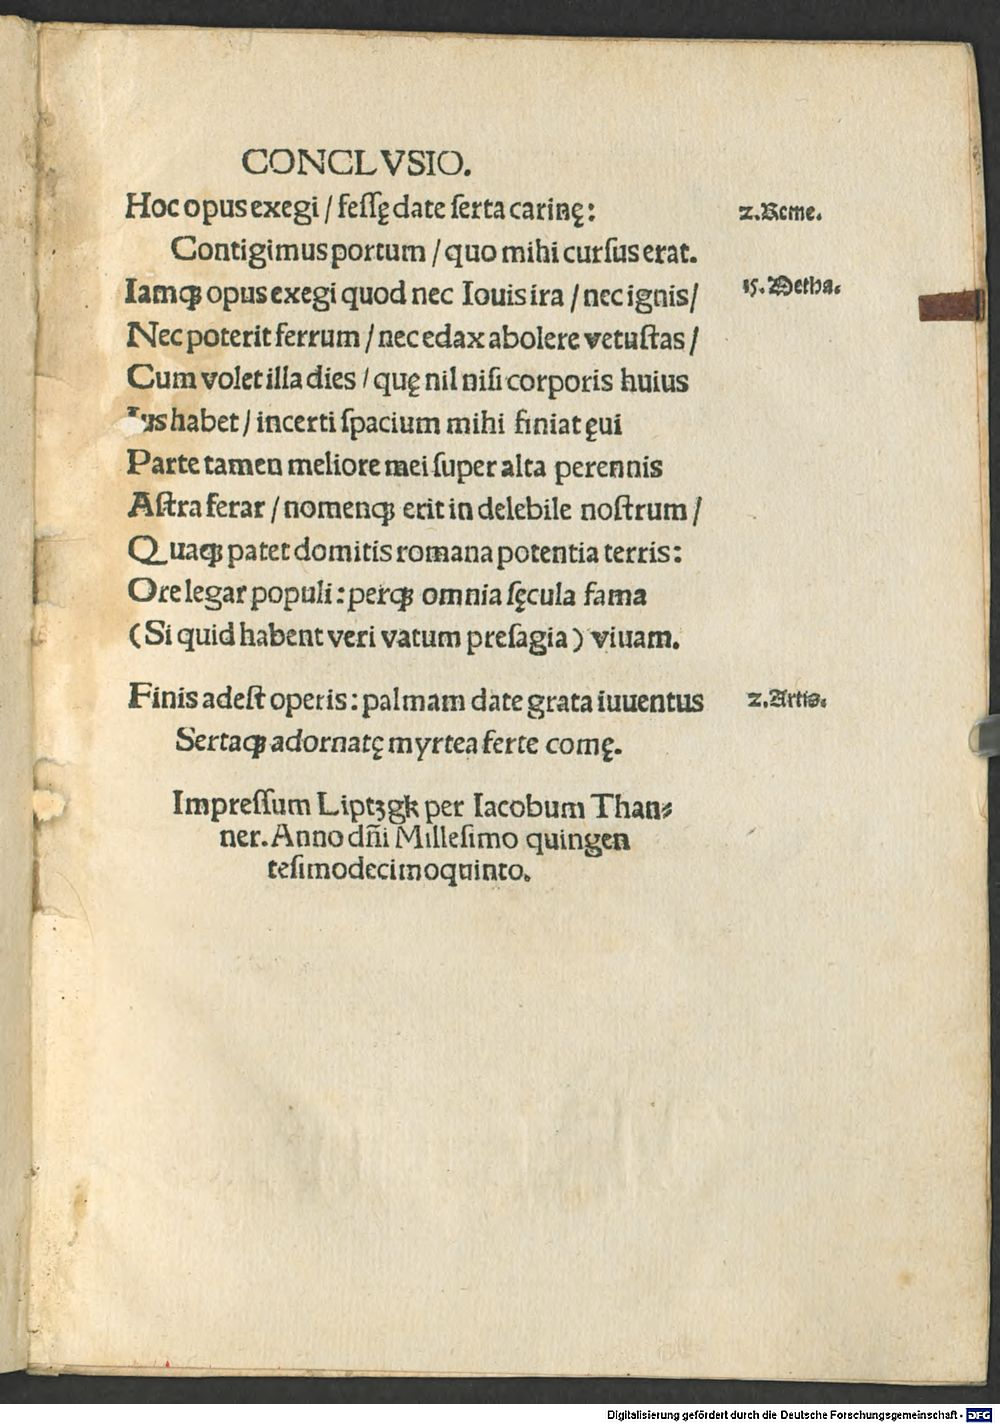 CONCLVSIO.
Hoc opus exegi / feſſę date ſerta carinę: 2. Reme.
Contigimus portum / quo mihi curſus erat.
Iamqꝫ opus exegi quod nec Iouis ira / nec ignis / 15. Metha.
Nec poterit ferrum / nec edax abolere vetuſtas /
Cum volet illa dies / quę nil niſi corporis huius
Ius habet / incerti ſpacium mihi finiat ęui
Parte tamen meliore mei ſuper alta perennis
Aſtra ferar / nomenqꝫ erit in delebile noſtrum /
Quaqꝫ patet domitis romana potentia terris:
Ore legar populi: perqꝫ omnia ſęcula fama
(Si quid habent veri vatum preſagia) viuam.
Finis adeſt operis: palmam date grata iuuentus 2. Artis.
Sertaqꝫ adornatę myrtea ferte comę.
Impreſſum Liptzgk per Iacobum Than⸗
ner. Anno dñi Milleſimo quingen
teſimodecimoquinto.
Digitalisierung gefördert durch die Deutsche Forschungsgemeinschaft - DFG